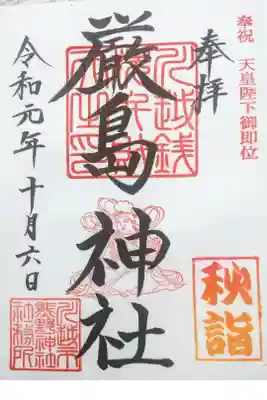 奉祝 天皇陛下御即位
奉拝
厳島神社
川越銭
令和元年十月六日
秋詣
川越市
熊野神社
社務所